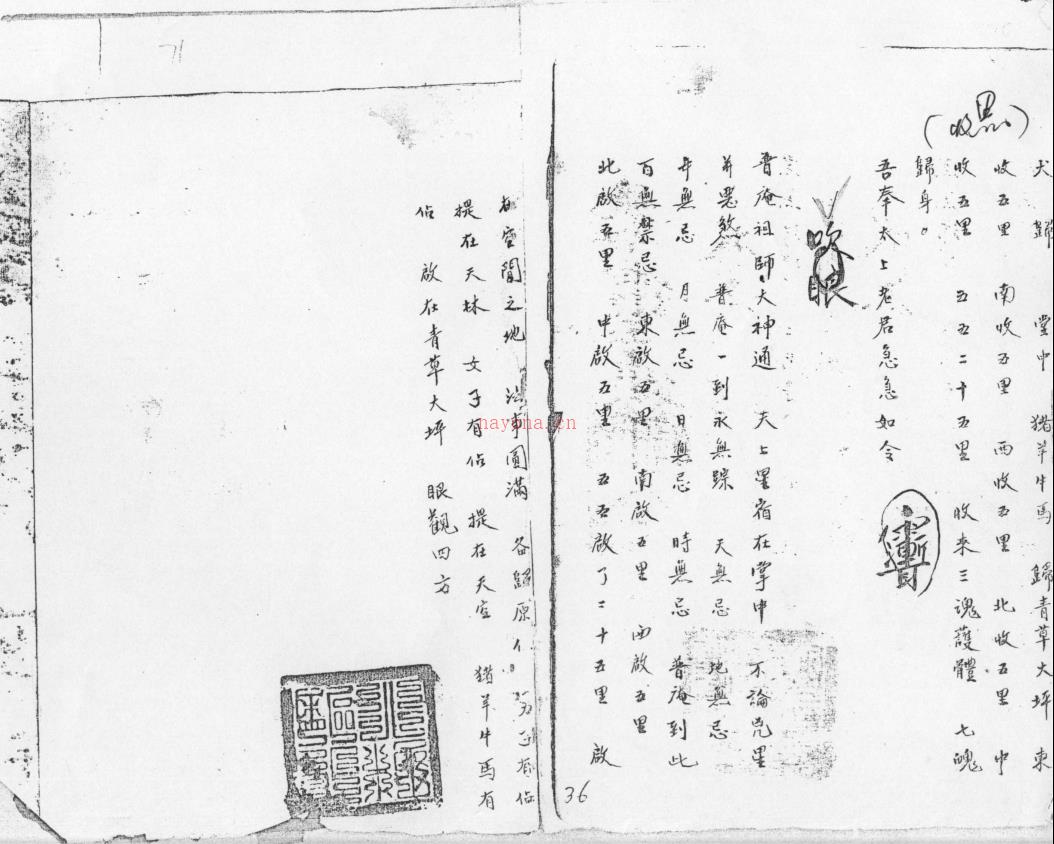 (收黑)
犬歸 堂中 猪羊牛馬 歸青草大坪 東
收五里 南收五里 西收五里 北收五里 中
收五里 五五二十五里 收來三魂護體 七魄
歸身。
吾奉太上老君急急如令
吹眼
普庵祖師大神通 天上星宿在掌中 不論兇星
并惡煞 普庵一到永無踪 天無忌 地無忌
年無忌 月無忌 日無忌 時無忌 普庵到此
百無禁忌 東啟五里 南啟五里 西啟五里
北啟五里 中啟五里 五五啟了二十五里 啟
在空閒之地 法事圓滿 各歸原位。 男子有佔
提在天林 女子有佔 提在天宮 猪羊牛馬有
佔 啟在青草大坪 眼觀四方
36
71
nayona.cn